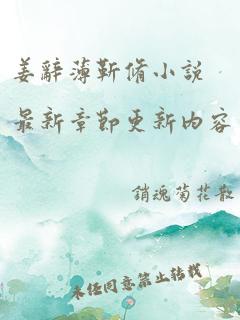 姜辭薄靳脩小說
最新章節更新內容
銷魂菊花散
未经同意禁止转载